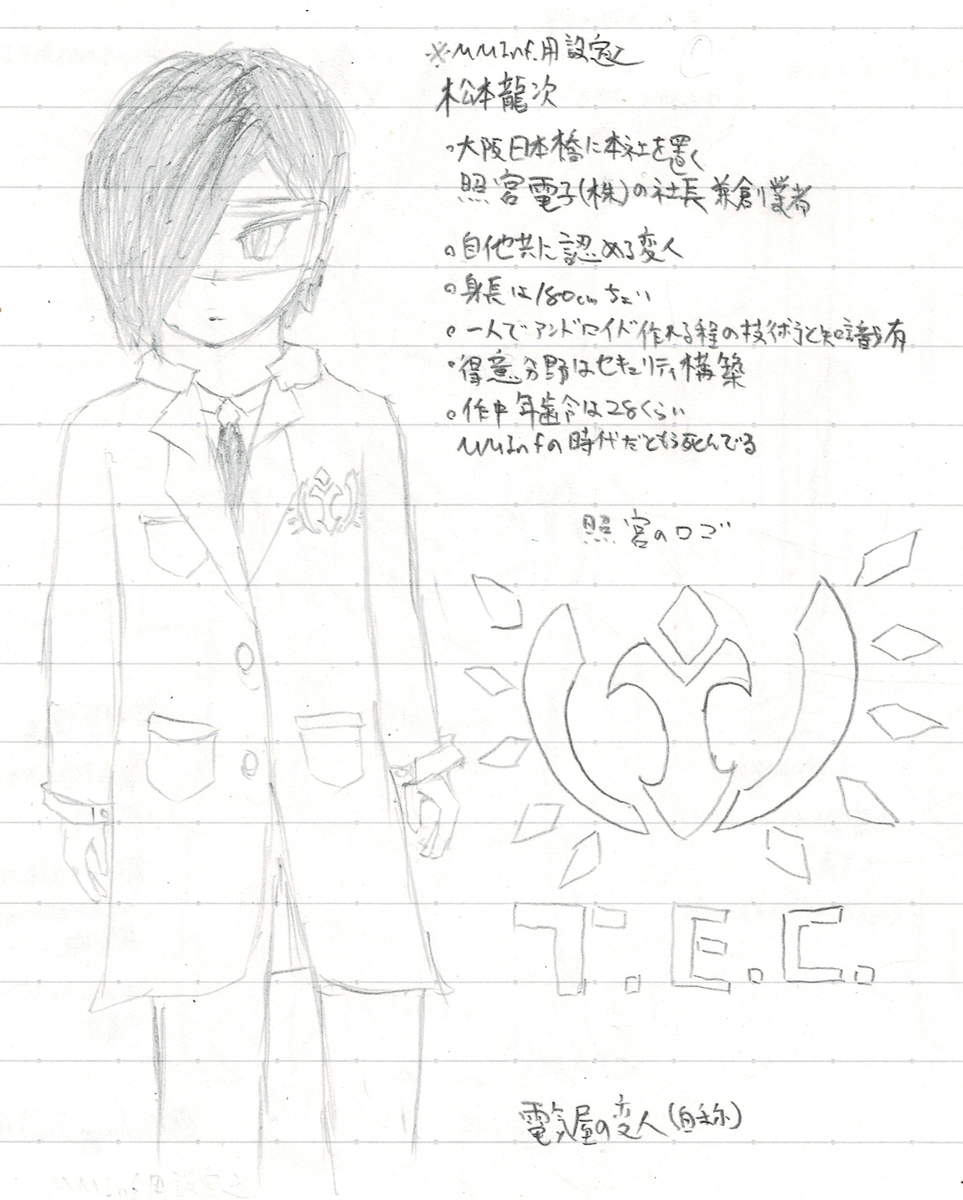 ※MMInf.用設定
松本龍次
◦大阪日本橋に本社を置く
照宮電子(株)の社長兼創業者
◦自他共に認める変人
◦身長は180cmちょい
◦一人でアンドロイド作れる程の技術力と知識有
◦得意分野はセキュリティ構築
◦作中年齢は28くらい
MMInfの時代だともう死んでる
照宮のロゴ
T.E.C.
電気屋の変人(自称)